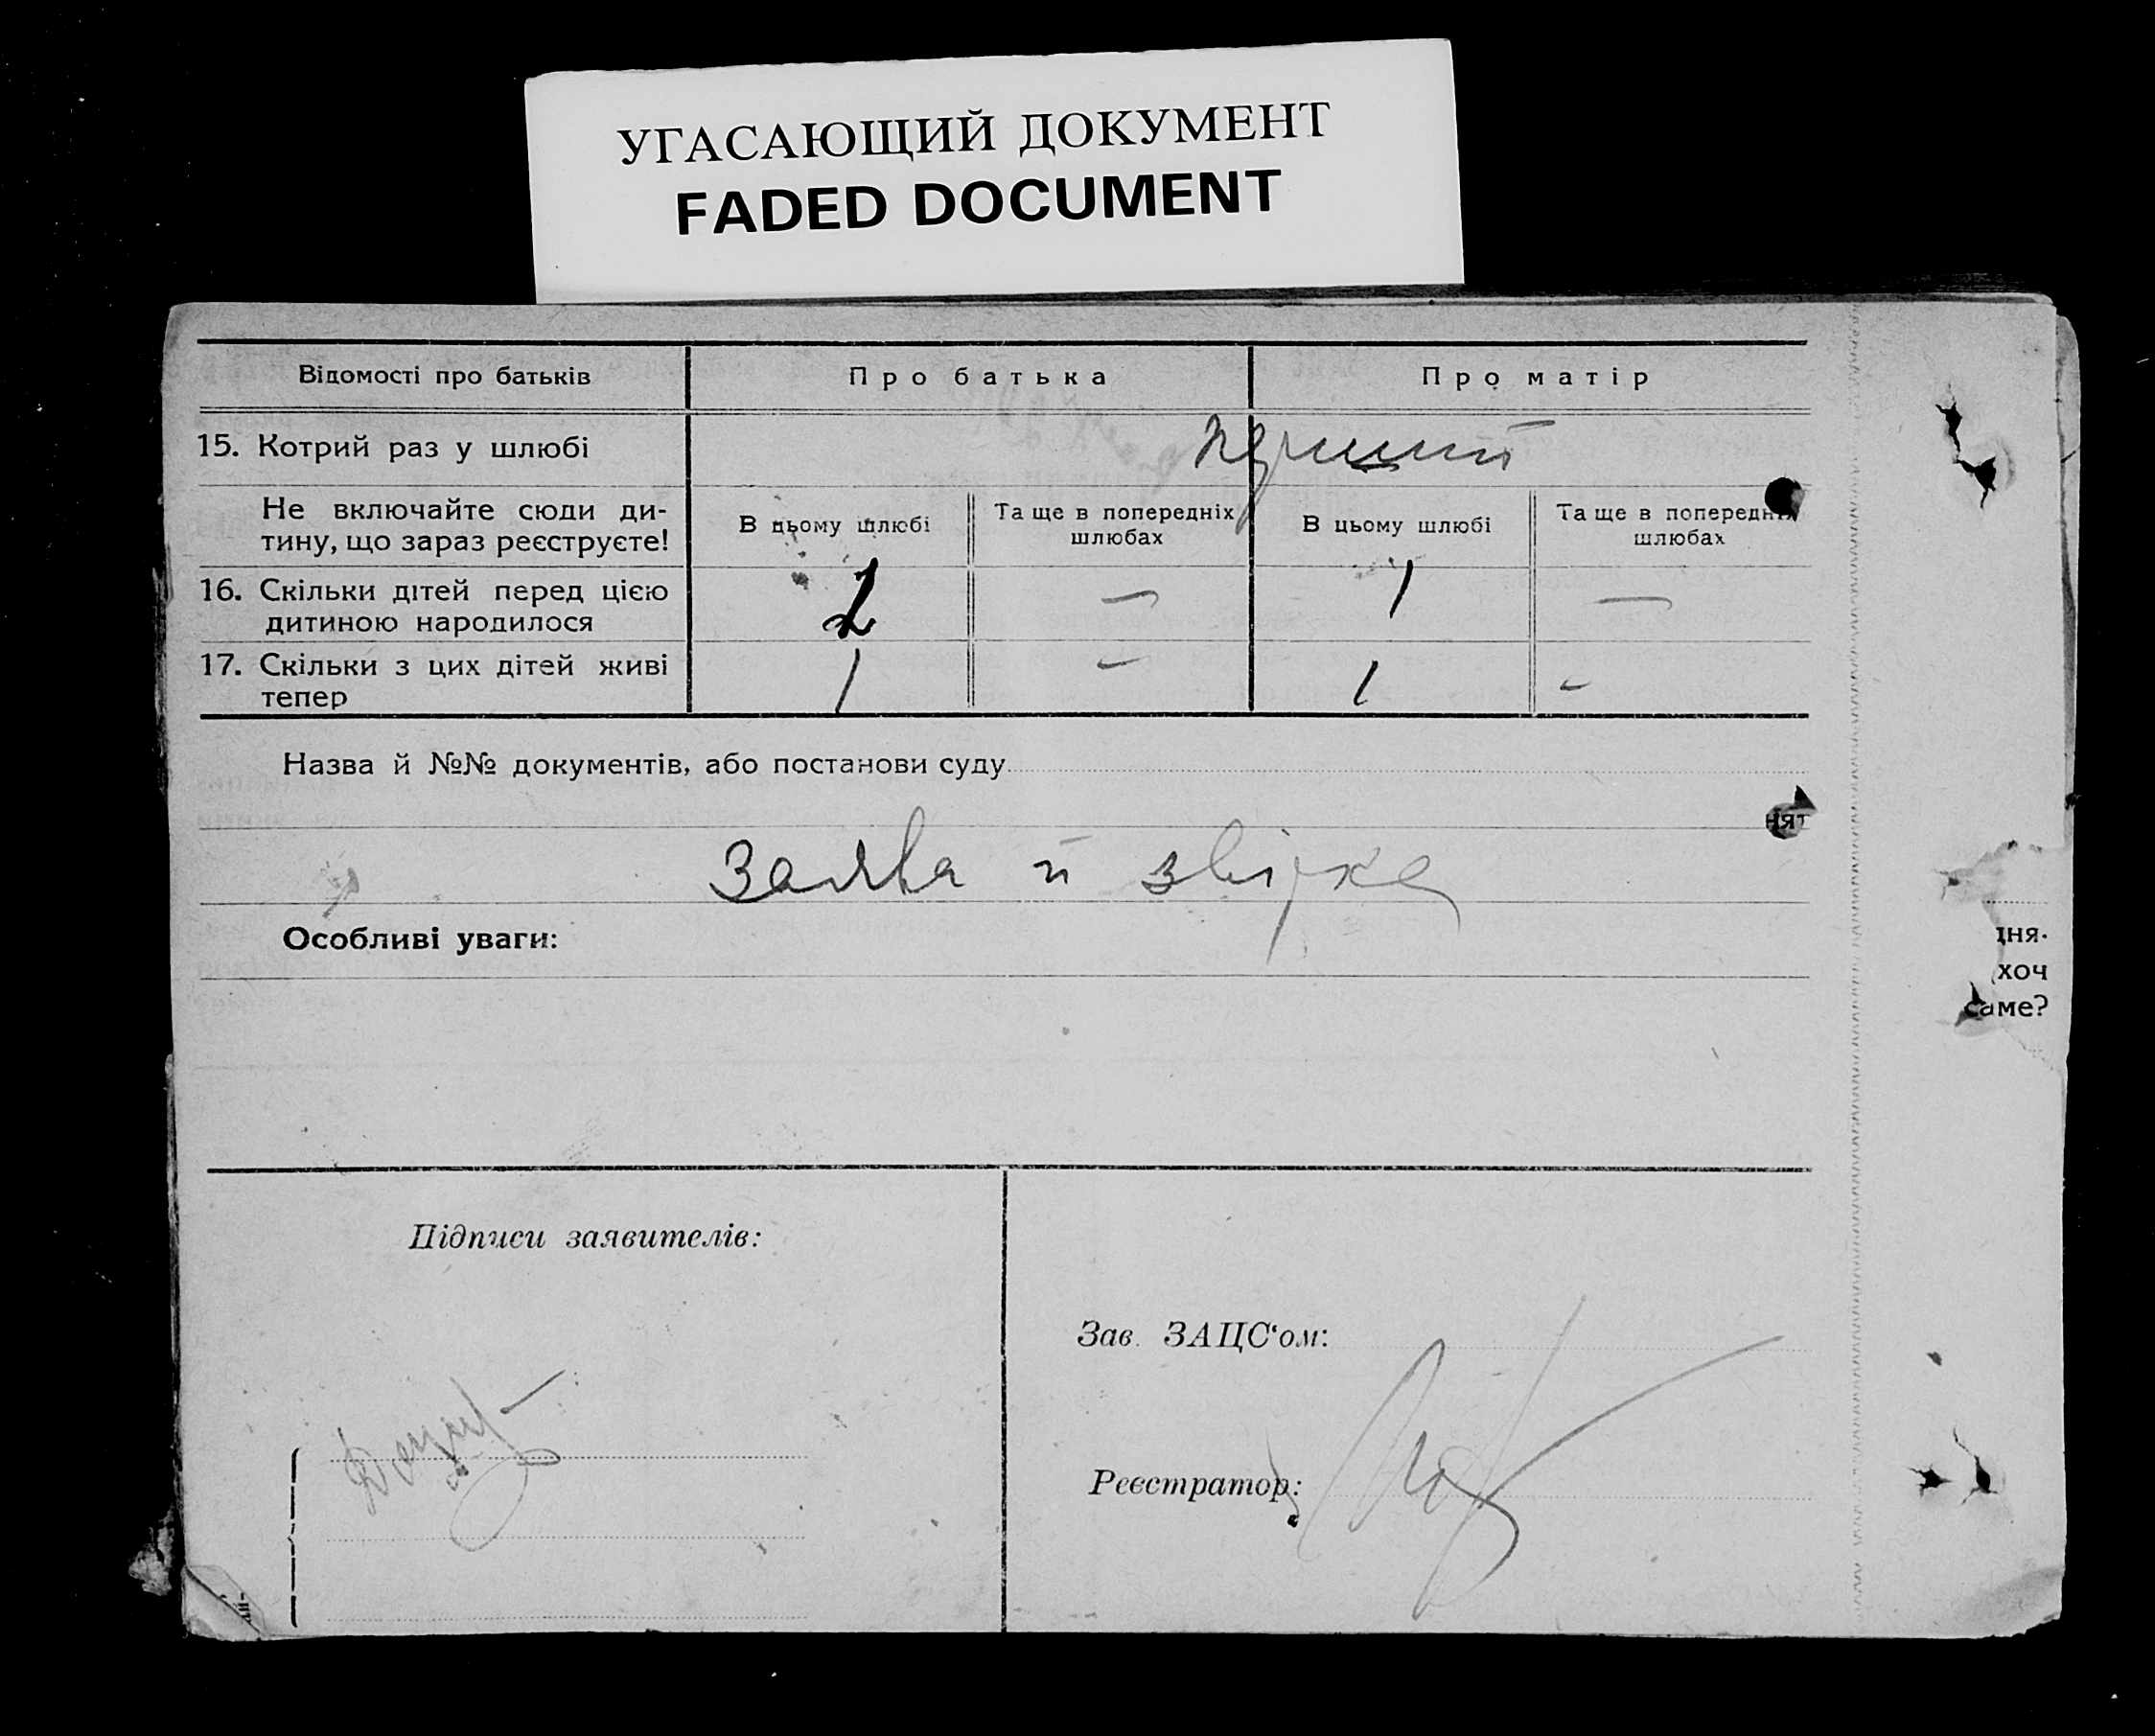 УГАСАЮЩИЙ ДОКУМЕНТ
FADED DOCUMENT
Відомості про батьків
Про батька
Про матір
15. Котрий раз у шлюбі
перший
Не включайте сюди ди-
тину, що зараз реєструєте!
В цьому шлюбі
Та ще в попередніх
шлюбах
В цьому шлюбі
Та ще в попередніх
шлюбах
16. Скільки дітей перед цією
дитиною народилося
2 — 1 —
17. Скільки з цих дітей живі
тепер
1 — 1 —
Назва й №№ документів, або постанови суду
нят
Заява й звірка
Особливі уваги:
дня.
хоч
саме?
Підписи заявителів:
Зав. ЗАЦС‘ом:
Реєстратор: